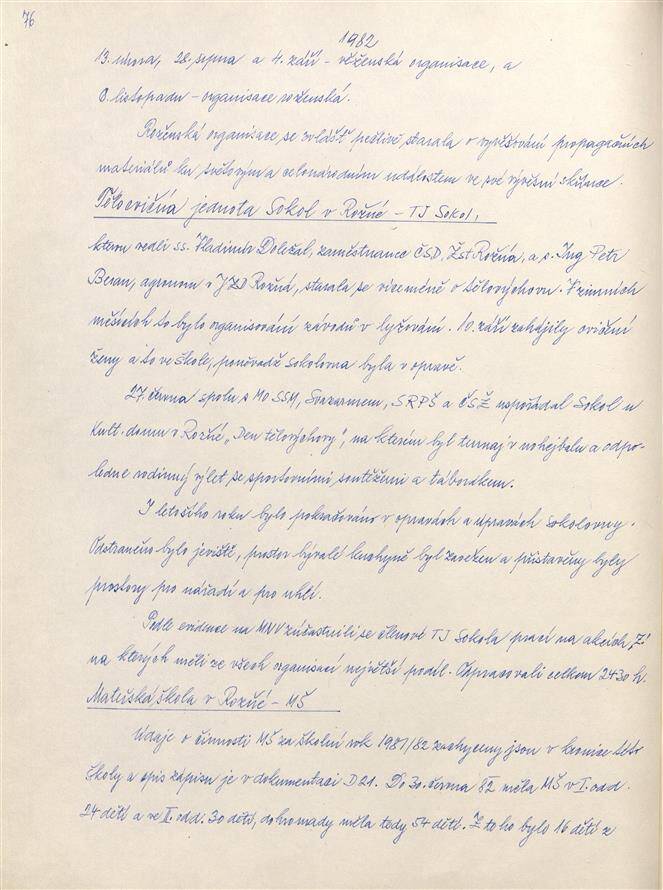 76
1982
13. února, 28. srpna a 4. září - věženská organisace, a
8. listopadu - organisace roženská.
Roženská organisace se zvlášť pečlivě starala o vyvěšování propagačních
materiálů ku světovým a celonárodním událostem ve své vývěsní skřínce.
Tělocvičná jednota Sokol v Rožné - TJ Sokol,
kterou vedli ss. Vladimír Doležal, zaměstnanec ČSD, Žst Rožná, a s. Ing Petr
Beran, agronom v JZD Rožná, starala se víceméně o tělovýchovu. V zimních
měsících to bylo organisování závodů v lyžování. 10. září zahájily cvičení
ženy a to ve škole, poněvadž sokolovna byla v opravě.
27. června spolu s MO SSM, Svazarmem, SRPŠ a ČSŽ uspořádal Sokol u
Kult. domu v Rožné „Den tělovýchovy", na kterém byl turnaj v nohejbalu a odpo-
ledne rodinný výlet se sportovními soutěžemi a táborákem.
I letošího roku bylo pokračováno v opravách a úpravách sokolovny.
Odstraněno bylo jeviště, prostor bývalé kuchyně byl zavežen a přistavěny byly
prostory pro nářadí a pro uhlí.
Podle evidence na MNV zúčastnili se členové TJ Sokola prací na akcích „Z"
na kterých měli ze všech organisací největší podíl. Odpracovali celkem 2430 h.
Mateřská škola v Rožné - MŠ
Údaje o činnosti MŠ za školní rok 1981/82 zachyceny jsou v kronice této
školy a opis zápisu je v dokumentaci D21. Do 30. června 82 měla MŠ v I. odd.
24 dětí a ve II. odd. 30 dětí, dohromady měla tedy 54 dětí. Z toho bylo 16 dětí z